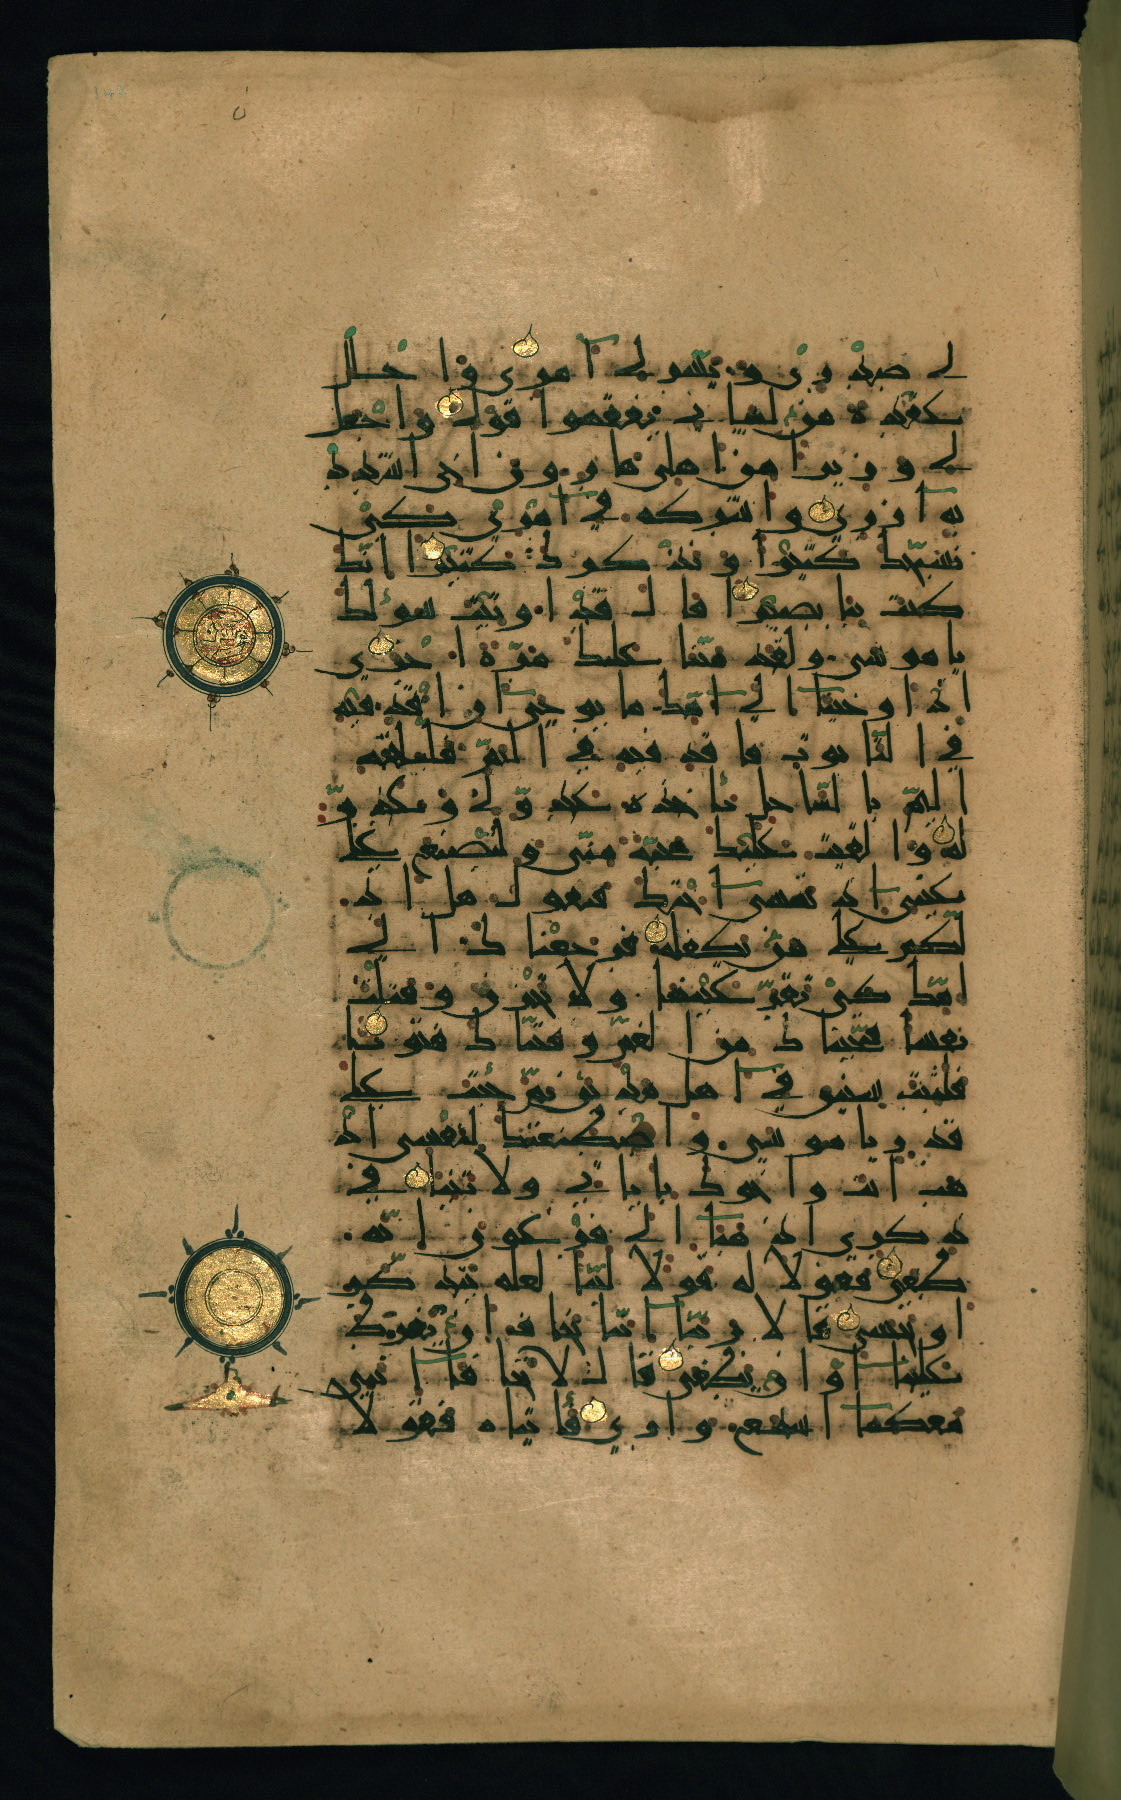 لي صدري ويسّر لي أمري واحلل
عقدة من لساني يفقهوا قولي واجعل
لي وزيرا من اهلي هارون اخي اشدد
به أزري واشركه في أمري كي
نسبّحك كثيرا ونذكرك كثيرا انّك
كنت بنا بصيرا قال قد اوتيت سؤلك
يا موسى ولقد مننّا عليك مرّة اخرى
اذ اوحينا الى امّك ما يوحى ان اقذفيه
في التّابوت فاقذفيه في اليمّ فليلقه
اليمّ بالسّاحل يأخذه عدوّ لي وعدوّ
له والقيت عليك محبّة منّي ولتصنع على
عيني اذ تمشي اختك فتقول هل اد
لّكم على من يكفله فرجعناك الى
امّك كي تقرّ عينها ولا تحزن وقتلت
نفسا فنجّيناك من الغمّ وفتنّاك فتونا
فلبثت سنين في أهل مدين ثمّ جئت على
قدر يا موسى واصطنعتك لنفسي اذ
هب انت واخوك باياتي ولا تنيا في
ذكري اذهبا الى فرعون انّه
طغى فقولا له قولا ليّنا لعله يتذكّر
او يخشى قالا ربّنا انّنا نخاف ان يفرط
علينا أو ان يطغى قال لا تخافا انّني
معكما اسمع وارى فأتياه فقولا